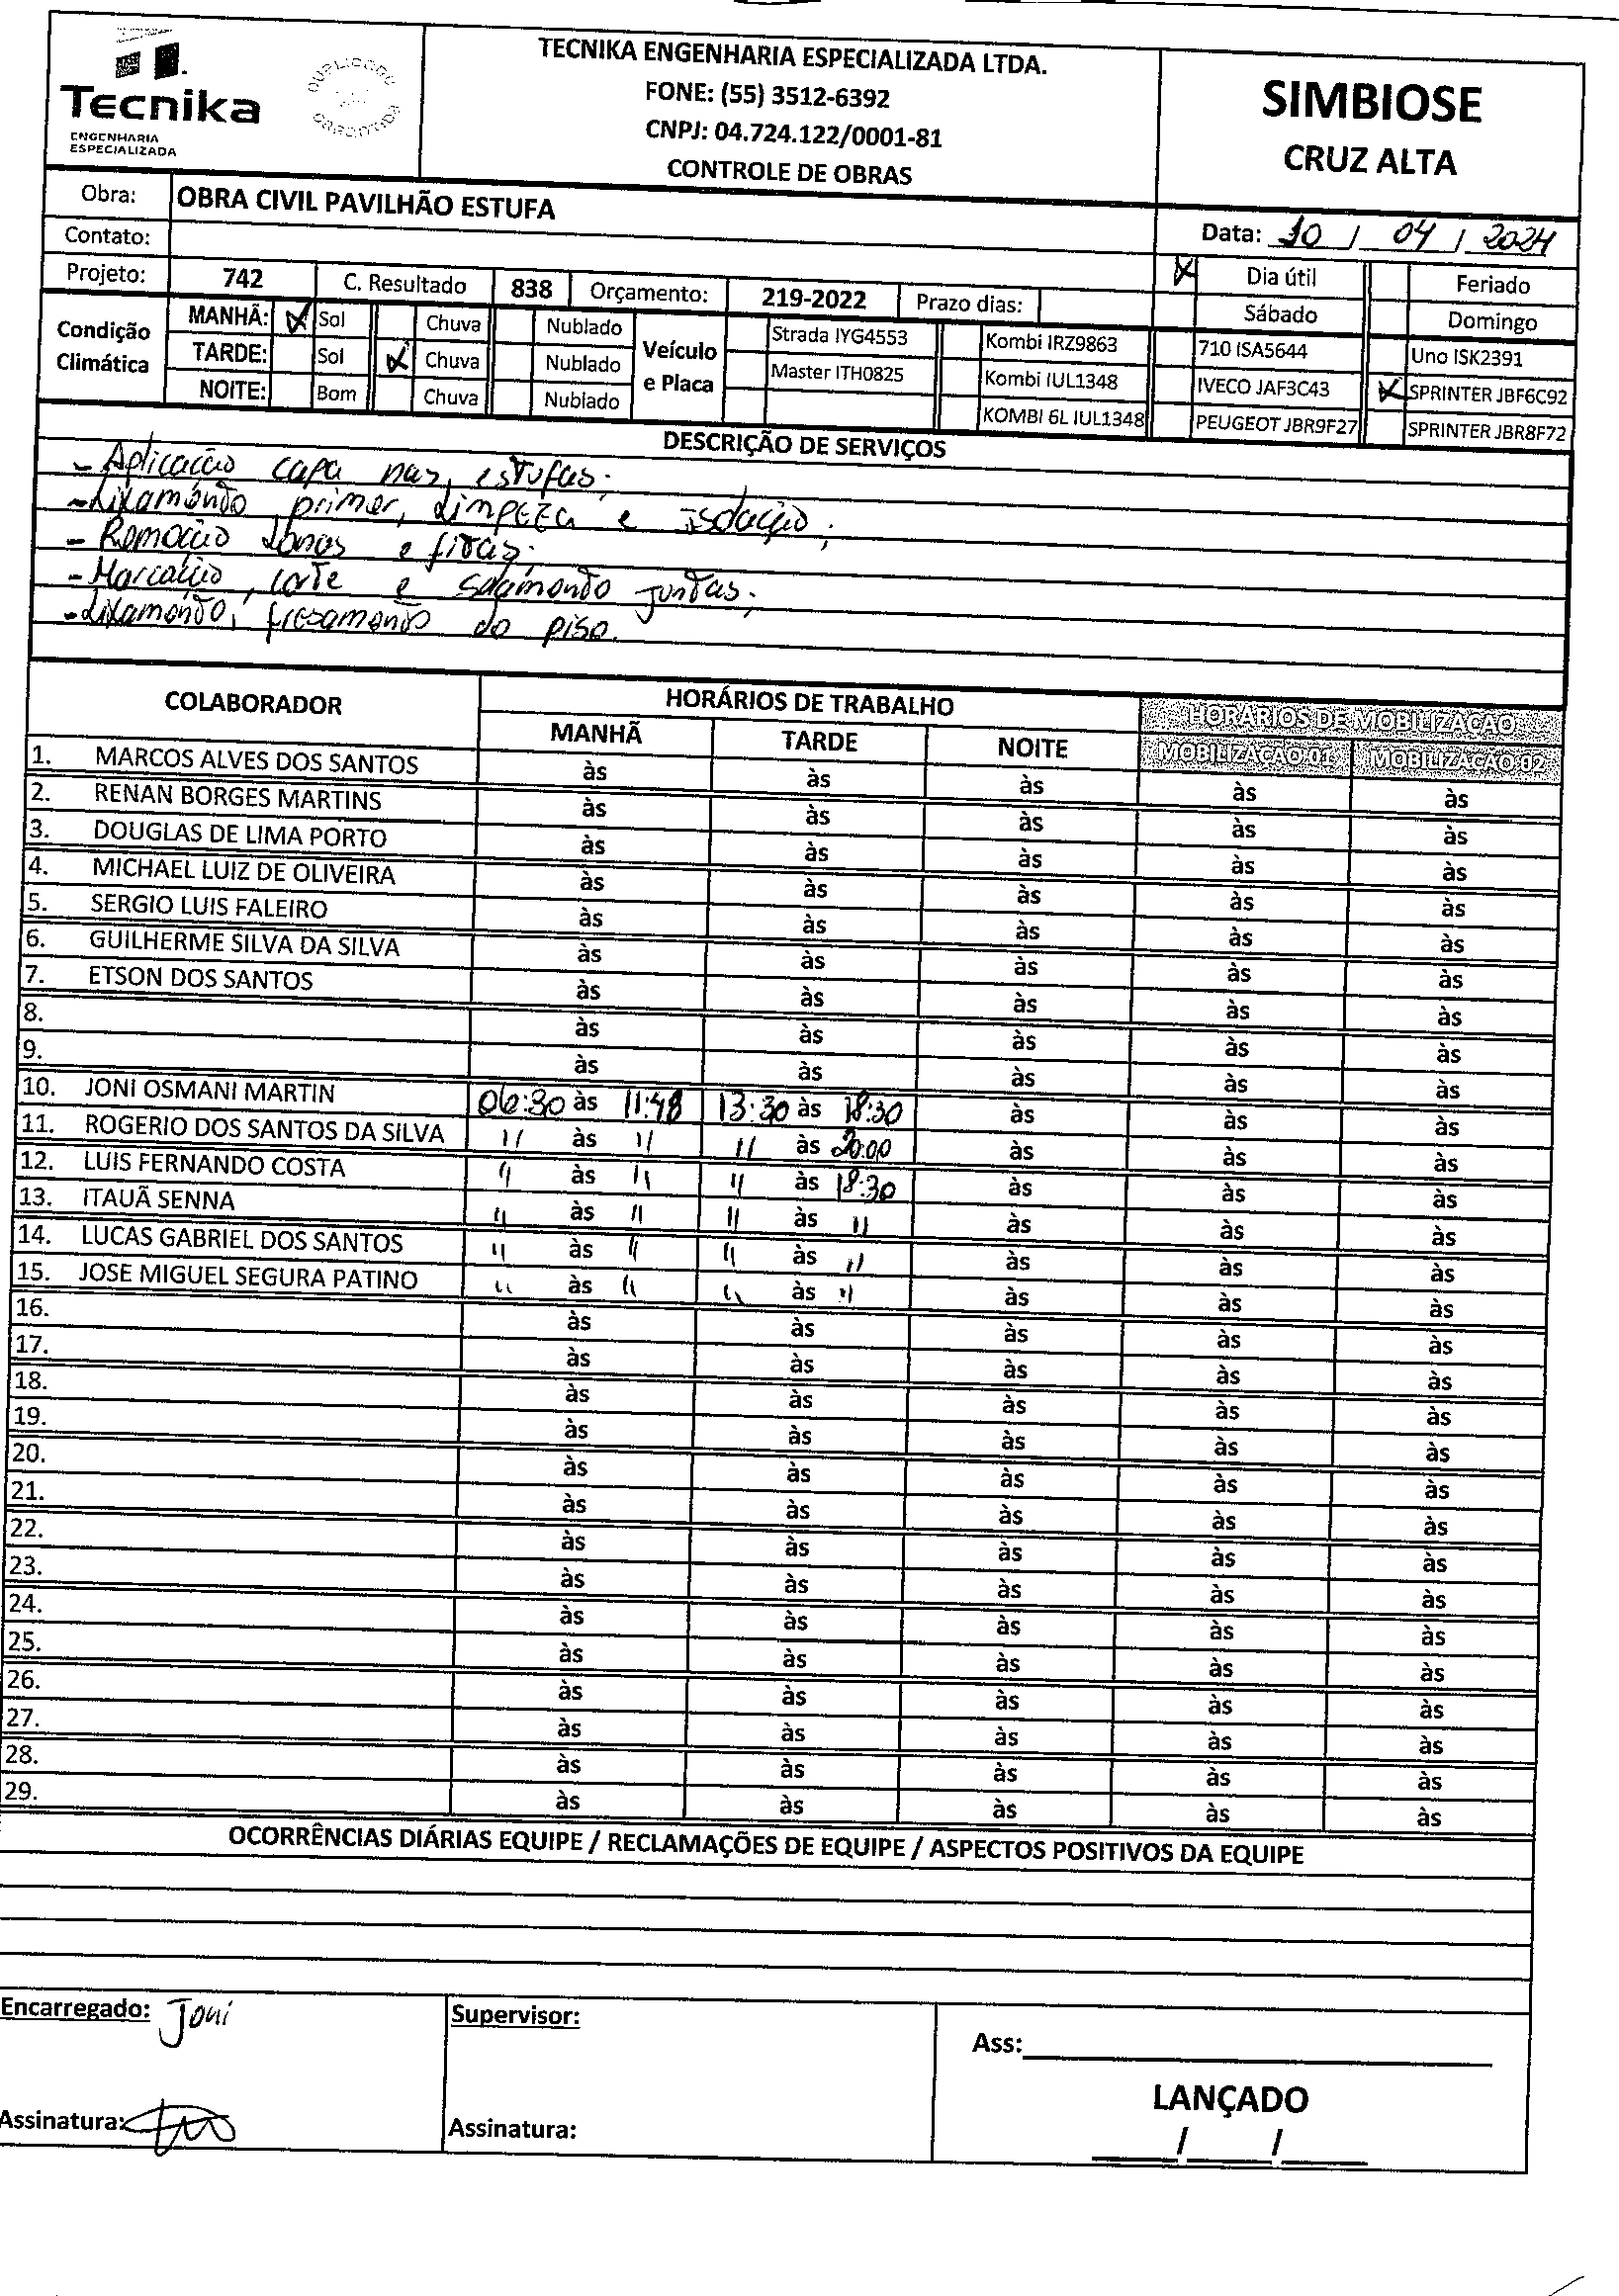 Tecnika
ENGENHARIA
ESPECIALIZADA
TECNIKA ENGENHARIA ESPECIALIZADA LTDA.
FONE: (55) 3512-6392
CNPJ: 04.724.122/0001-81
CONTROLE DE OBRAS
SIMBIOSE
CRUZ ALTA
Obra: OBRA CIVIL PAVILHÃO ESTUFA
Contato:
Data: 10 / 04 / 2024
Projeto: 742 C. Resultado 838 Orçamento: 219-2022 Prazo dias:
Dia útil Feriado
Sábado Domingo
Condição Climática
MANHÃ: Sol Chuva Nublado
TARDE: Sol Chuva Nublado
NOITE: Bom Chuva Nublado
Veículo e Placa
Strada IYG4553 Kombi IRZ9863 710 ISA5644 Uno ISK2391
Master ITH0825 Kombi IUL1348 IVECO JAF3C43 SPRINTER JBF6C92
KOMBI 6L IUL1348 PEUGEOT JBR9F27 SPRINTER JBR8F72
DESCRIÇÃO DE SERVIÇOS
- Aplicação capa nas estufas;
- Lixamento primer, Limpeza e isolação;
- Remoção Lonas e fitas;
- Marcação, corte e selamento juntas;
- Lixamento, fresamento do piso.
COLABORADOR HORÁRIOS DE TRABALHO HORÁRIOS DE MOBILIZAÇÃO
MANHÃ TARDE NOITE MOBILIZAÇÃO 01 MOBILIZAÇÃO 02
1. MARCOS ALVES DOS SANTOS às às às às às
2. RENAN BORGES MARTINS às às às às às
3. DOUGLAS DE LIMA PORTO às às às às às
4. MICHAEL LUIZ DE OLIVEIRA às às às às às
5. SERGIO LUIS FALEIRO às às às às às
6. GUILHERME SILVA DA SILVA às às às às às
7. ETSON DOS SANTOS às às às às às
8. às às às às às
9. às às às às às
10. JONI OSMANI MARTIN 06:30 às 11:48 13:30 às 18:30 às às às
11. ROGERIO DOS SANTOS DA SILVA " às " " às 20:00 às às às
12. LUIS FERNANDO COSTA " às " " às 18:30 às às às
13. ITAUÃ SENNA " às " " às " às às às
14. LUCAS GABRIEL DOS SANTOS " às " " às " às às às
15. JOSE MIGUEL SEGURA PATINO " às " " às " às às às
16. às às às às às
17. às às às às às
18. às às às às às
19. às às às às às
20. às às às às às
21. às às às às às
22. às às às às às
23. às às às às às
24. às às às às às
25. às às às às às
26. às às às às às
27. às às às às às
28. às às às às às
29. às às às às às
OCORRÊNCIAS DIÁRIAS EQUIPE / RECLAMAÇÕES DE EQUIPE / ASPECTOS POSITIVOS DA EQUIPE
Encarregado: Joni
Supervisor:
Ass:
LANÇADO
Assinatura:
Assinatura:
/ /